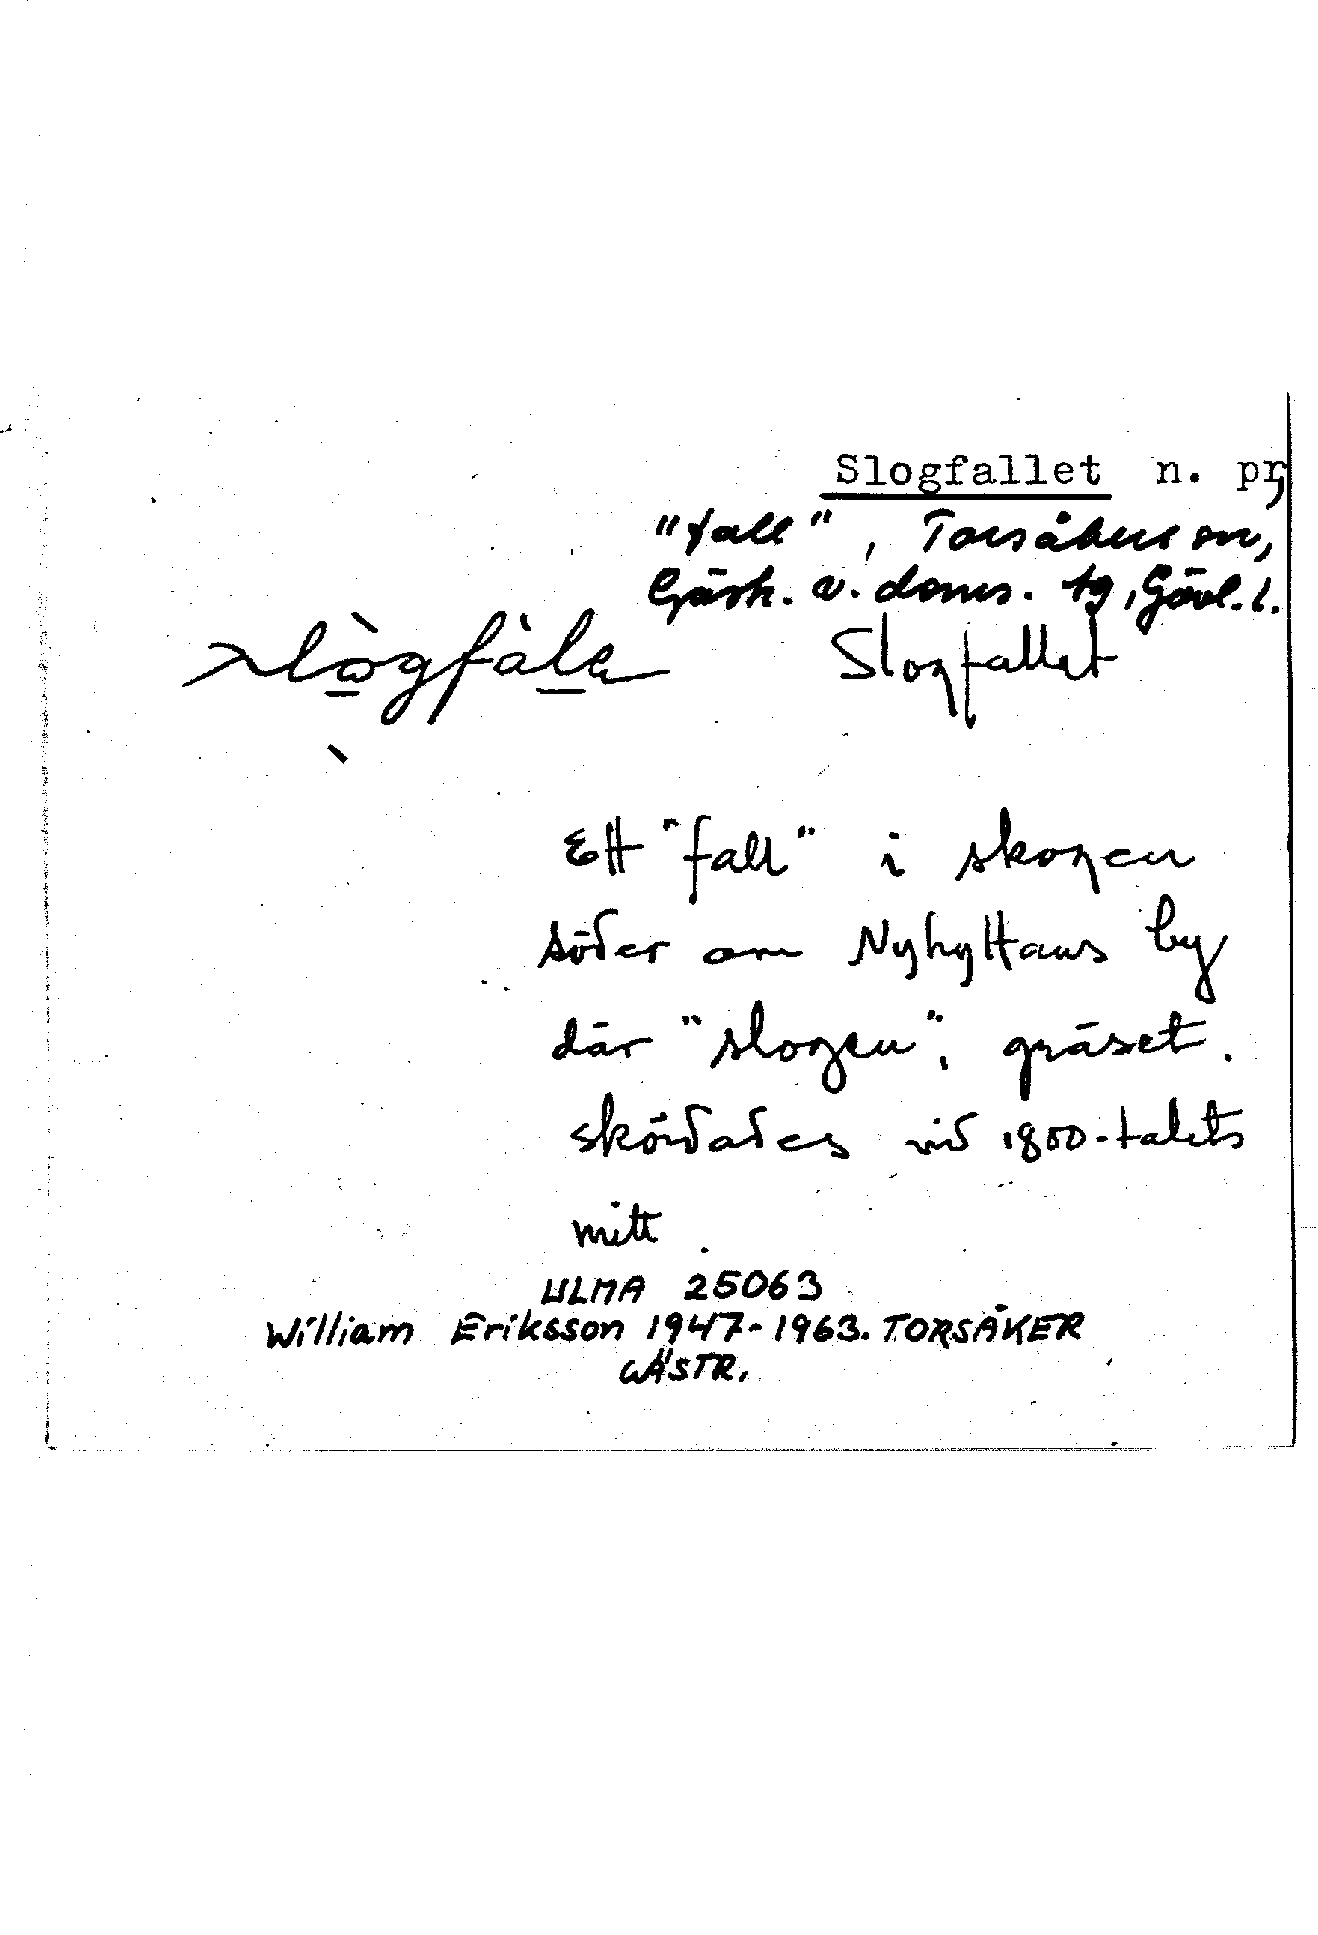 Slogfallet n. pr,
"fall", Torsåkers sn,
Gästr. v. doms. tg, Gävl. l.
slògfàla Slogfallet
Ett "fall" i skogen
söder om Nyhyttans by
där "slogen", gräset.
skördades vid 1800-talets
mitt.
ULMA 25063
William Eriksson 1947-1963. TORSÅKER
GÄSTR.